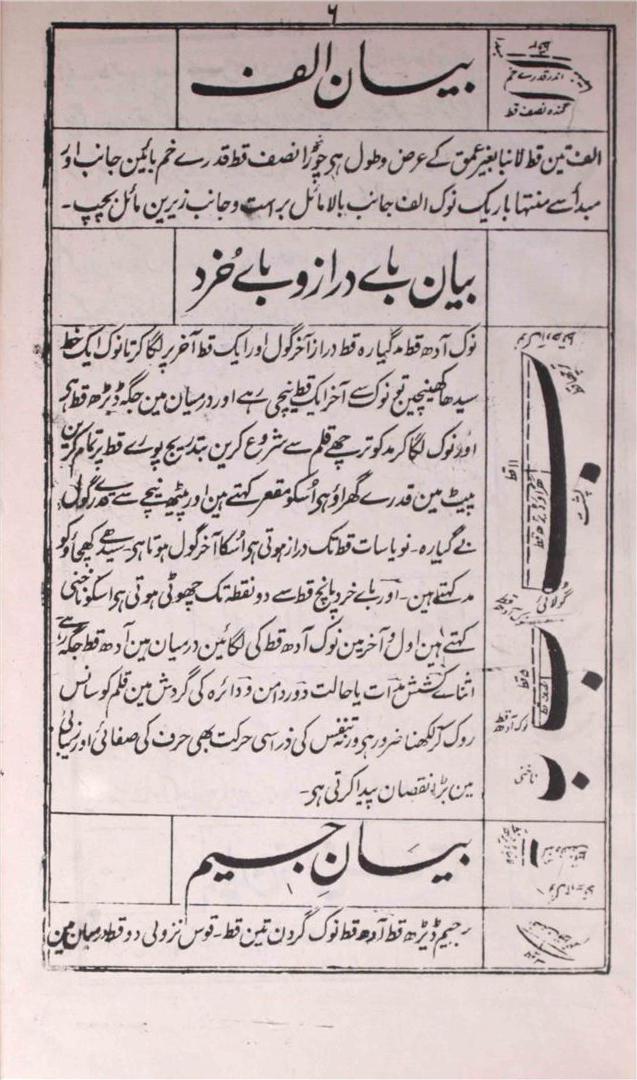 ۶
بیان الف
اندر قدرے خم
گندہ نصف قط
الف تین قط لانبا بغیر عمق کے عرض و طول ہو چوڑا نصف قط قدرے خم بائین جانب اور
مبدأ سے منتہا باریک نوک الف جانب بالا مائل براست و جانب زیرین مائل بچپ۔
بیان باے دراز و باے خُرد
نوک آدھ قط مد گیارہ قط دراز آخر گول اور ایک قط آخر پر لگا کر تا نوک ایک خط
سیدھا کھینچین تو نوک سے آخر ایک قط نیچی رہے اور درمیان مین جگہ ڈیڑھ قط ہو
اور نوک لگا کر مد کو ترچھے قلم سے شروع کرین بتدریج پورے قط پر تمام کرین
پیٹ مین قدرے گھراؤ ہو اُسکو مقعر کہتے ہین اور پیٹھ نیچے سے قدرے گول
بے گیارہ۔ نو یا سات قط تک دراز ہوتی ہو اُسکا آخر گول ہوتا ہو۔ سیدھے کھچاؤ کو
مد کہتے ہین۔ اور باے خرد پانچ قط سے دو نقطہ تک چھوٹی ہوتی ہو اسکو ناخنی
کہتے ہین اول و آخر مین نوک آدھ قط کی لگائین درمیان مین آدھ قط جگہ رہے
اثناے کشش مدات یا حالت دور دامن و دائرہ کی گردش مین قلم کو سانس
روک کر لکھنا ضرور ہو ورنہ تنفس کی ذرا سی حرکت بھی حرف کی صفائی اور زیبائی
مین بڑا نقصان پیدا کرتی ہو۔
۱۱ قط
پشت
گولائی
نوک آدھ قط
۵ قط
نوک آدھ قط
ناخنی
بیانِ جیم
رجیم ڈیڑھ قط آدھ قط نوک گردن تین قط۔ قوس نزولی دو قط درمیان مین